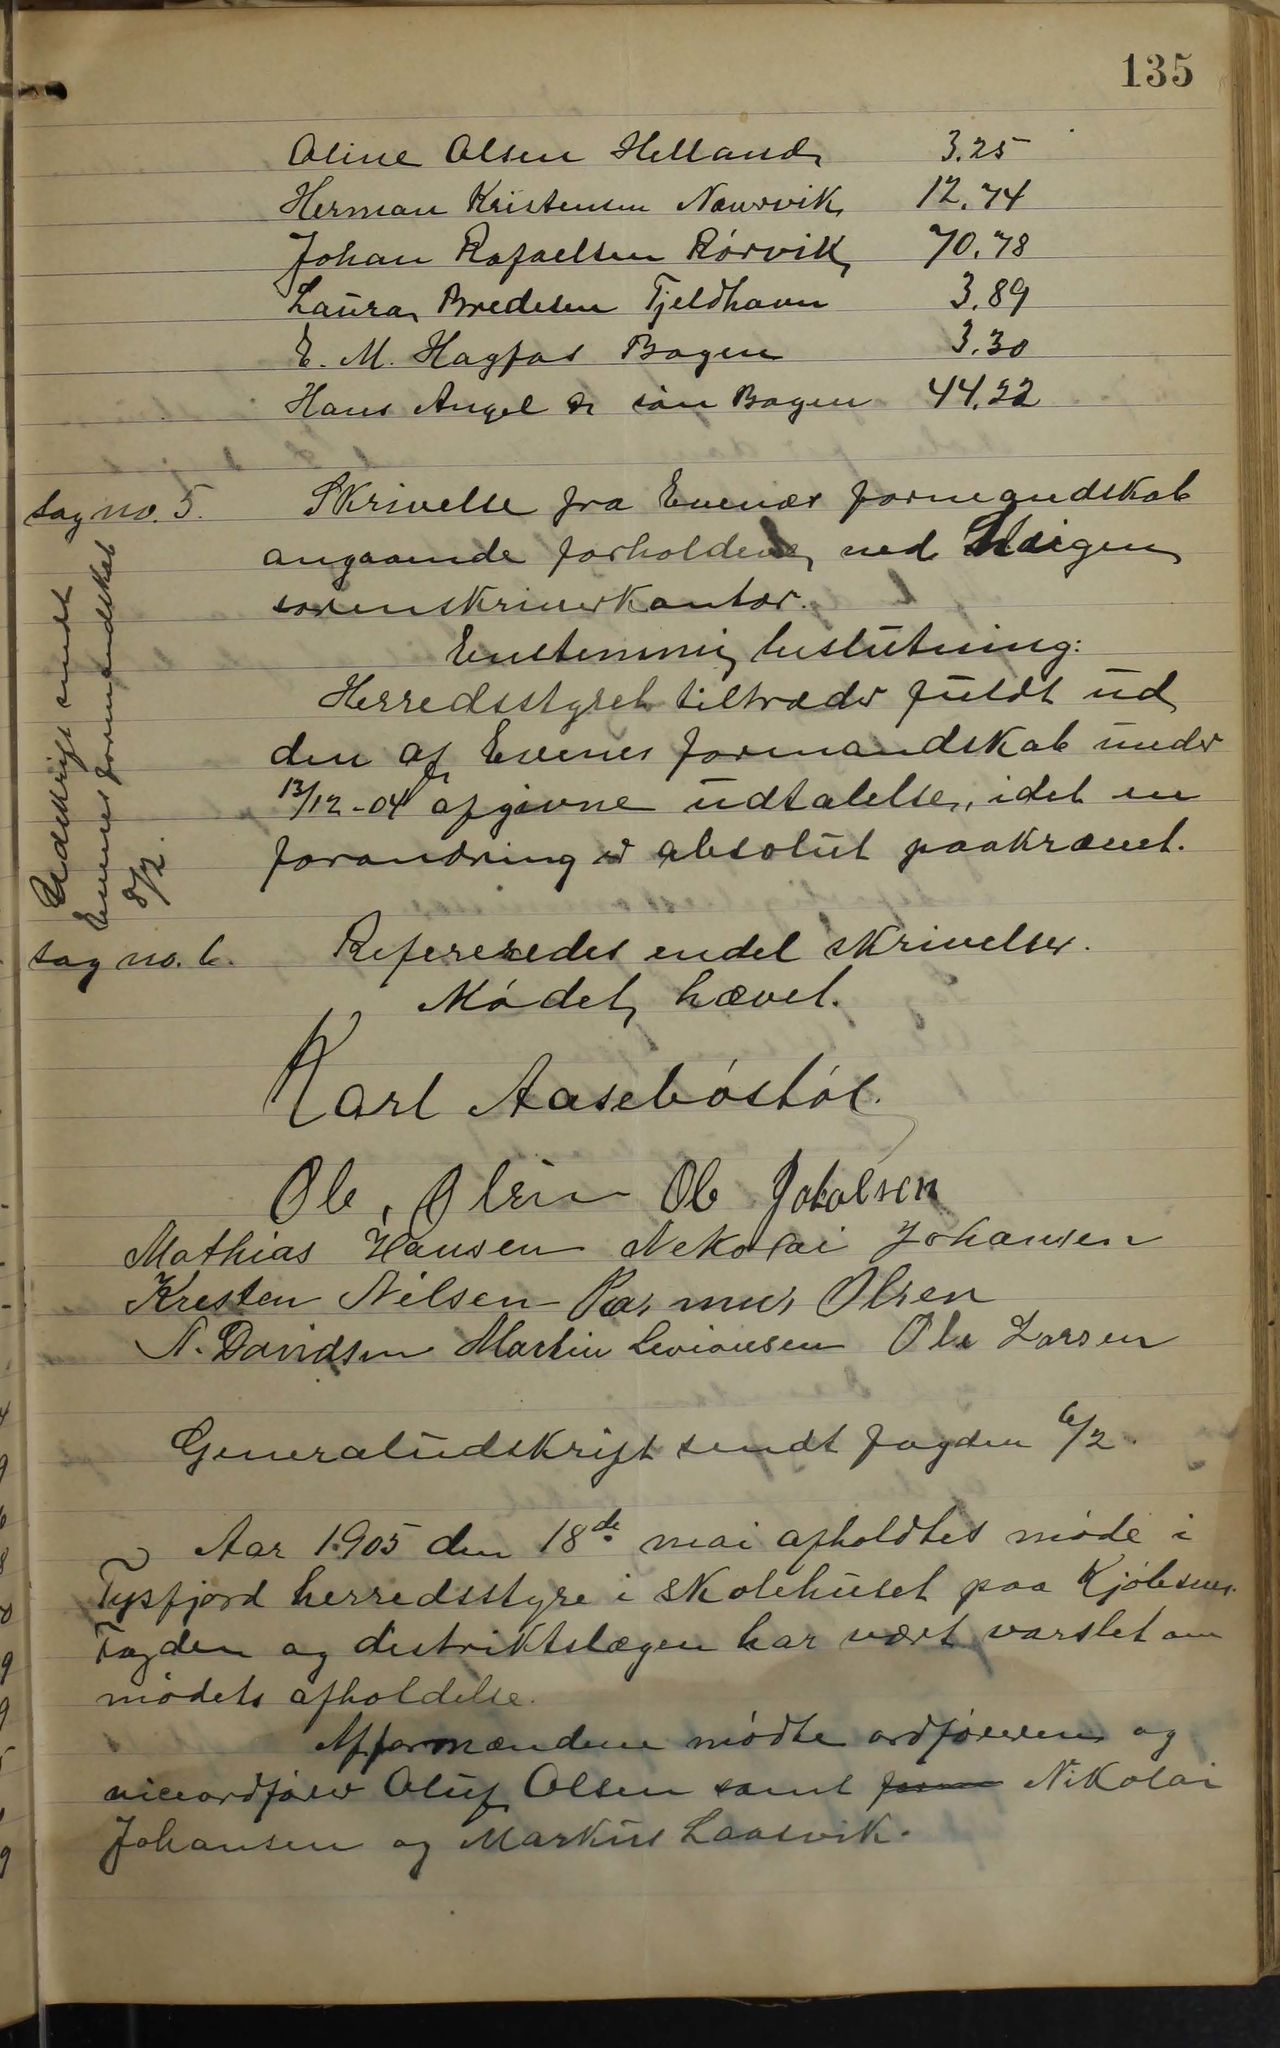 135
Oline Olsen Helland 3.25
Herman Kristensen Narvik 12.74
Johan Rafaelsen Rórvik 70.78
Laura Bredesen Fjeldhavn 3.89
E. M. Hagfas Bogen 3.30
Hans Angel & sön Bogen 44.22
Sag no. 5. Skrivelse fra Evenæs formandskab
angaaende forholdene ved Steigen
sorenskriverkontor.
Enstemmig beslutning:
Herredsstyret tiltræder fuldt ud
den af Evenes formandskab under
13/12-04 afgivne udtalelse, idet en
forandring er absolut paakrævet.
Udskrift sendt
Evenes formandskab
8/2.
Sag no. 6. Refereredes endel skrivelser.
Mödet hævet.
Karl Aasebóstól.
Ole. Olsen Ole Jakobsen
Mathias Hansen Nekolai Johansen
Kresten Nilsen Rasmus Olsen
N. Davidsen Martin Sivionsen Ole Larsen
Generaludskrift sendt fogden 6/2.
Aar 1905 den 18de mai afholdtes móde i
Tysfjord herredsstyre i skolehuset paa Kjóbsnes.
Fogden og distriktslægen har vært varslet om
módets afholdelse.
Af formændene módte ordföreren og
viceordförer Oluf Olsen samt Nikolai
Johansen og Markus Laasvik.